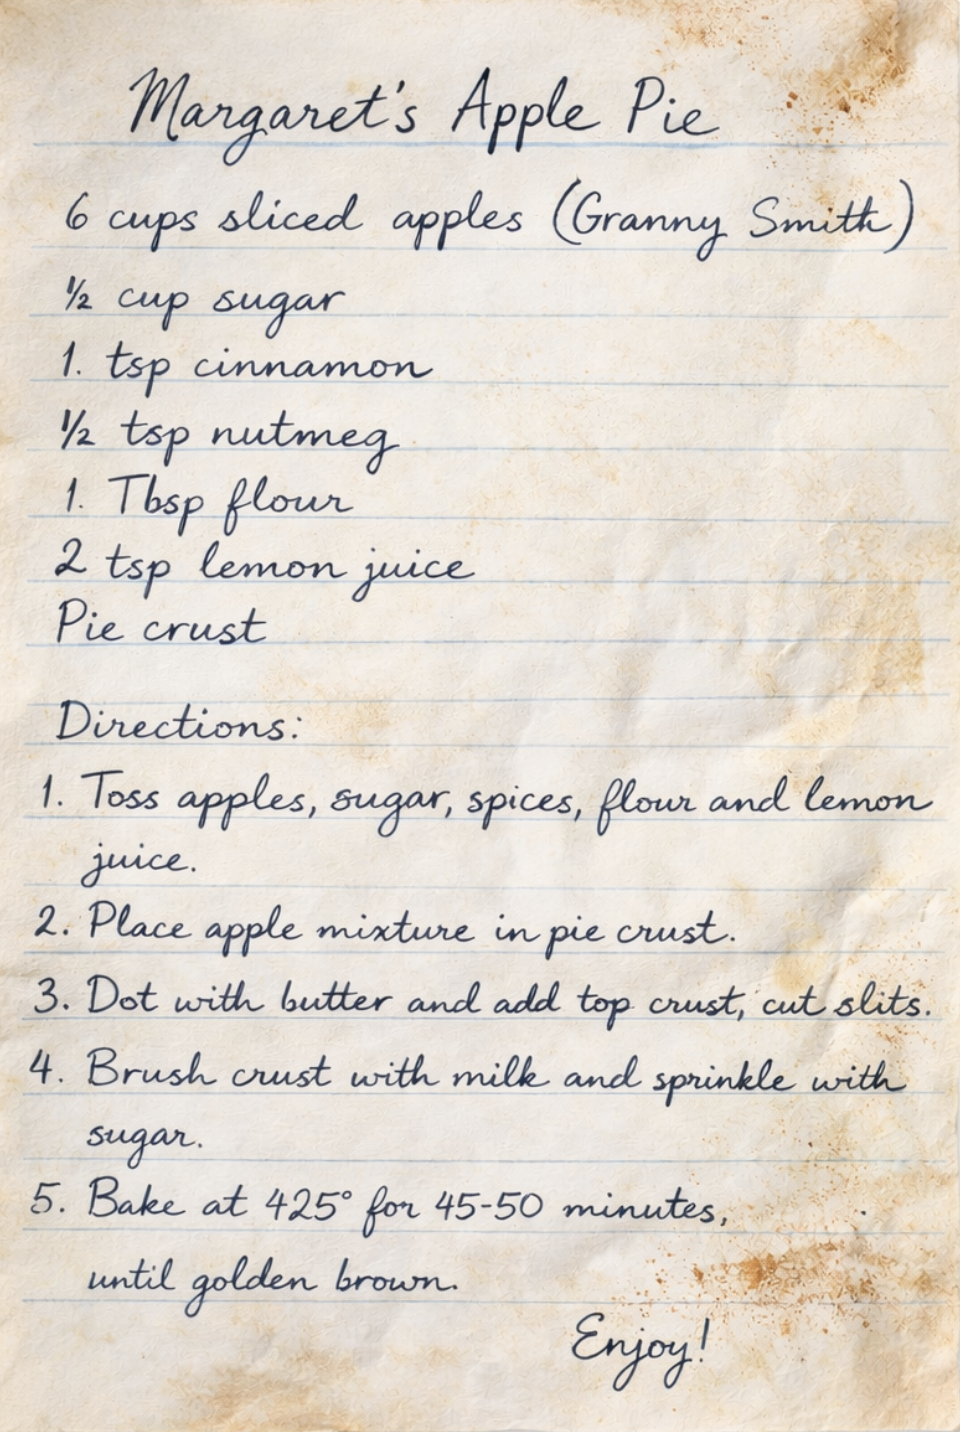 Margaret's Apple Pie
6 cups sliced apples (Granny Smith)
½ cup sugar
1. tsp cinnamon
½ tsp nutmeg
1. Tbsp flour
2 tsp lemon juice
Pie crust
Directions:
1. Toss apples, sugar, spices, flour and lemon
juice.
2. Place apple mixture in pie crust.
3. Dot with butter and add top crust, cut slits.
4. Brush crust with milk and sprinkle with
sugar.
5. Bake at 425° for 45-50 minutes,
until golden brown.
Enjoy!